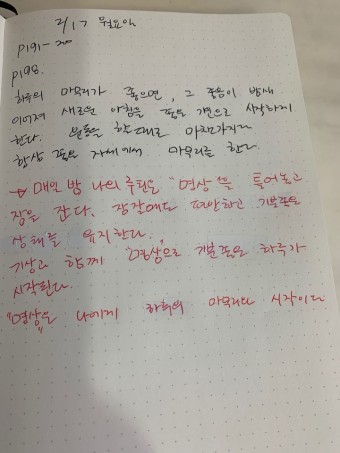 2/17 월요일
p191-200
p198.
하루의 마무리가 좋으면, 그 좋음이 밤새
이어져 새로운 아침을 좋은 기분으로 시작하게
한다. 운동을 할 때도 마찬가지다
항상 좋은 자세에서 마무리를 한다.
→ 매일 밤 나의 루틴은 "명상"을 틀어놓고
잠을 잔다. 잠잘때도 편안하고 기분좋은
상태를 유지한다.
기상과 함께 "명상"으로 기분좋은 하루가
시작된다.
"명상은 나에게 하루의 마무리와 시작이다